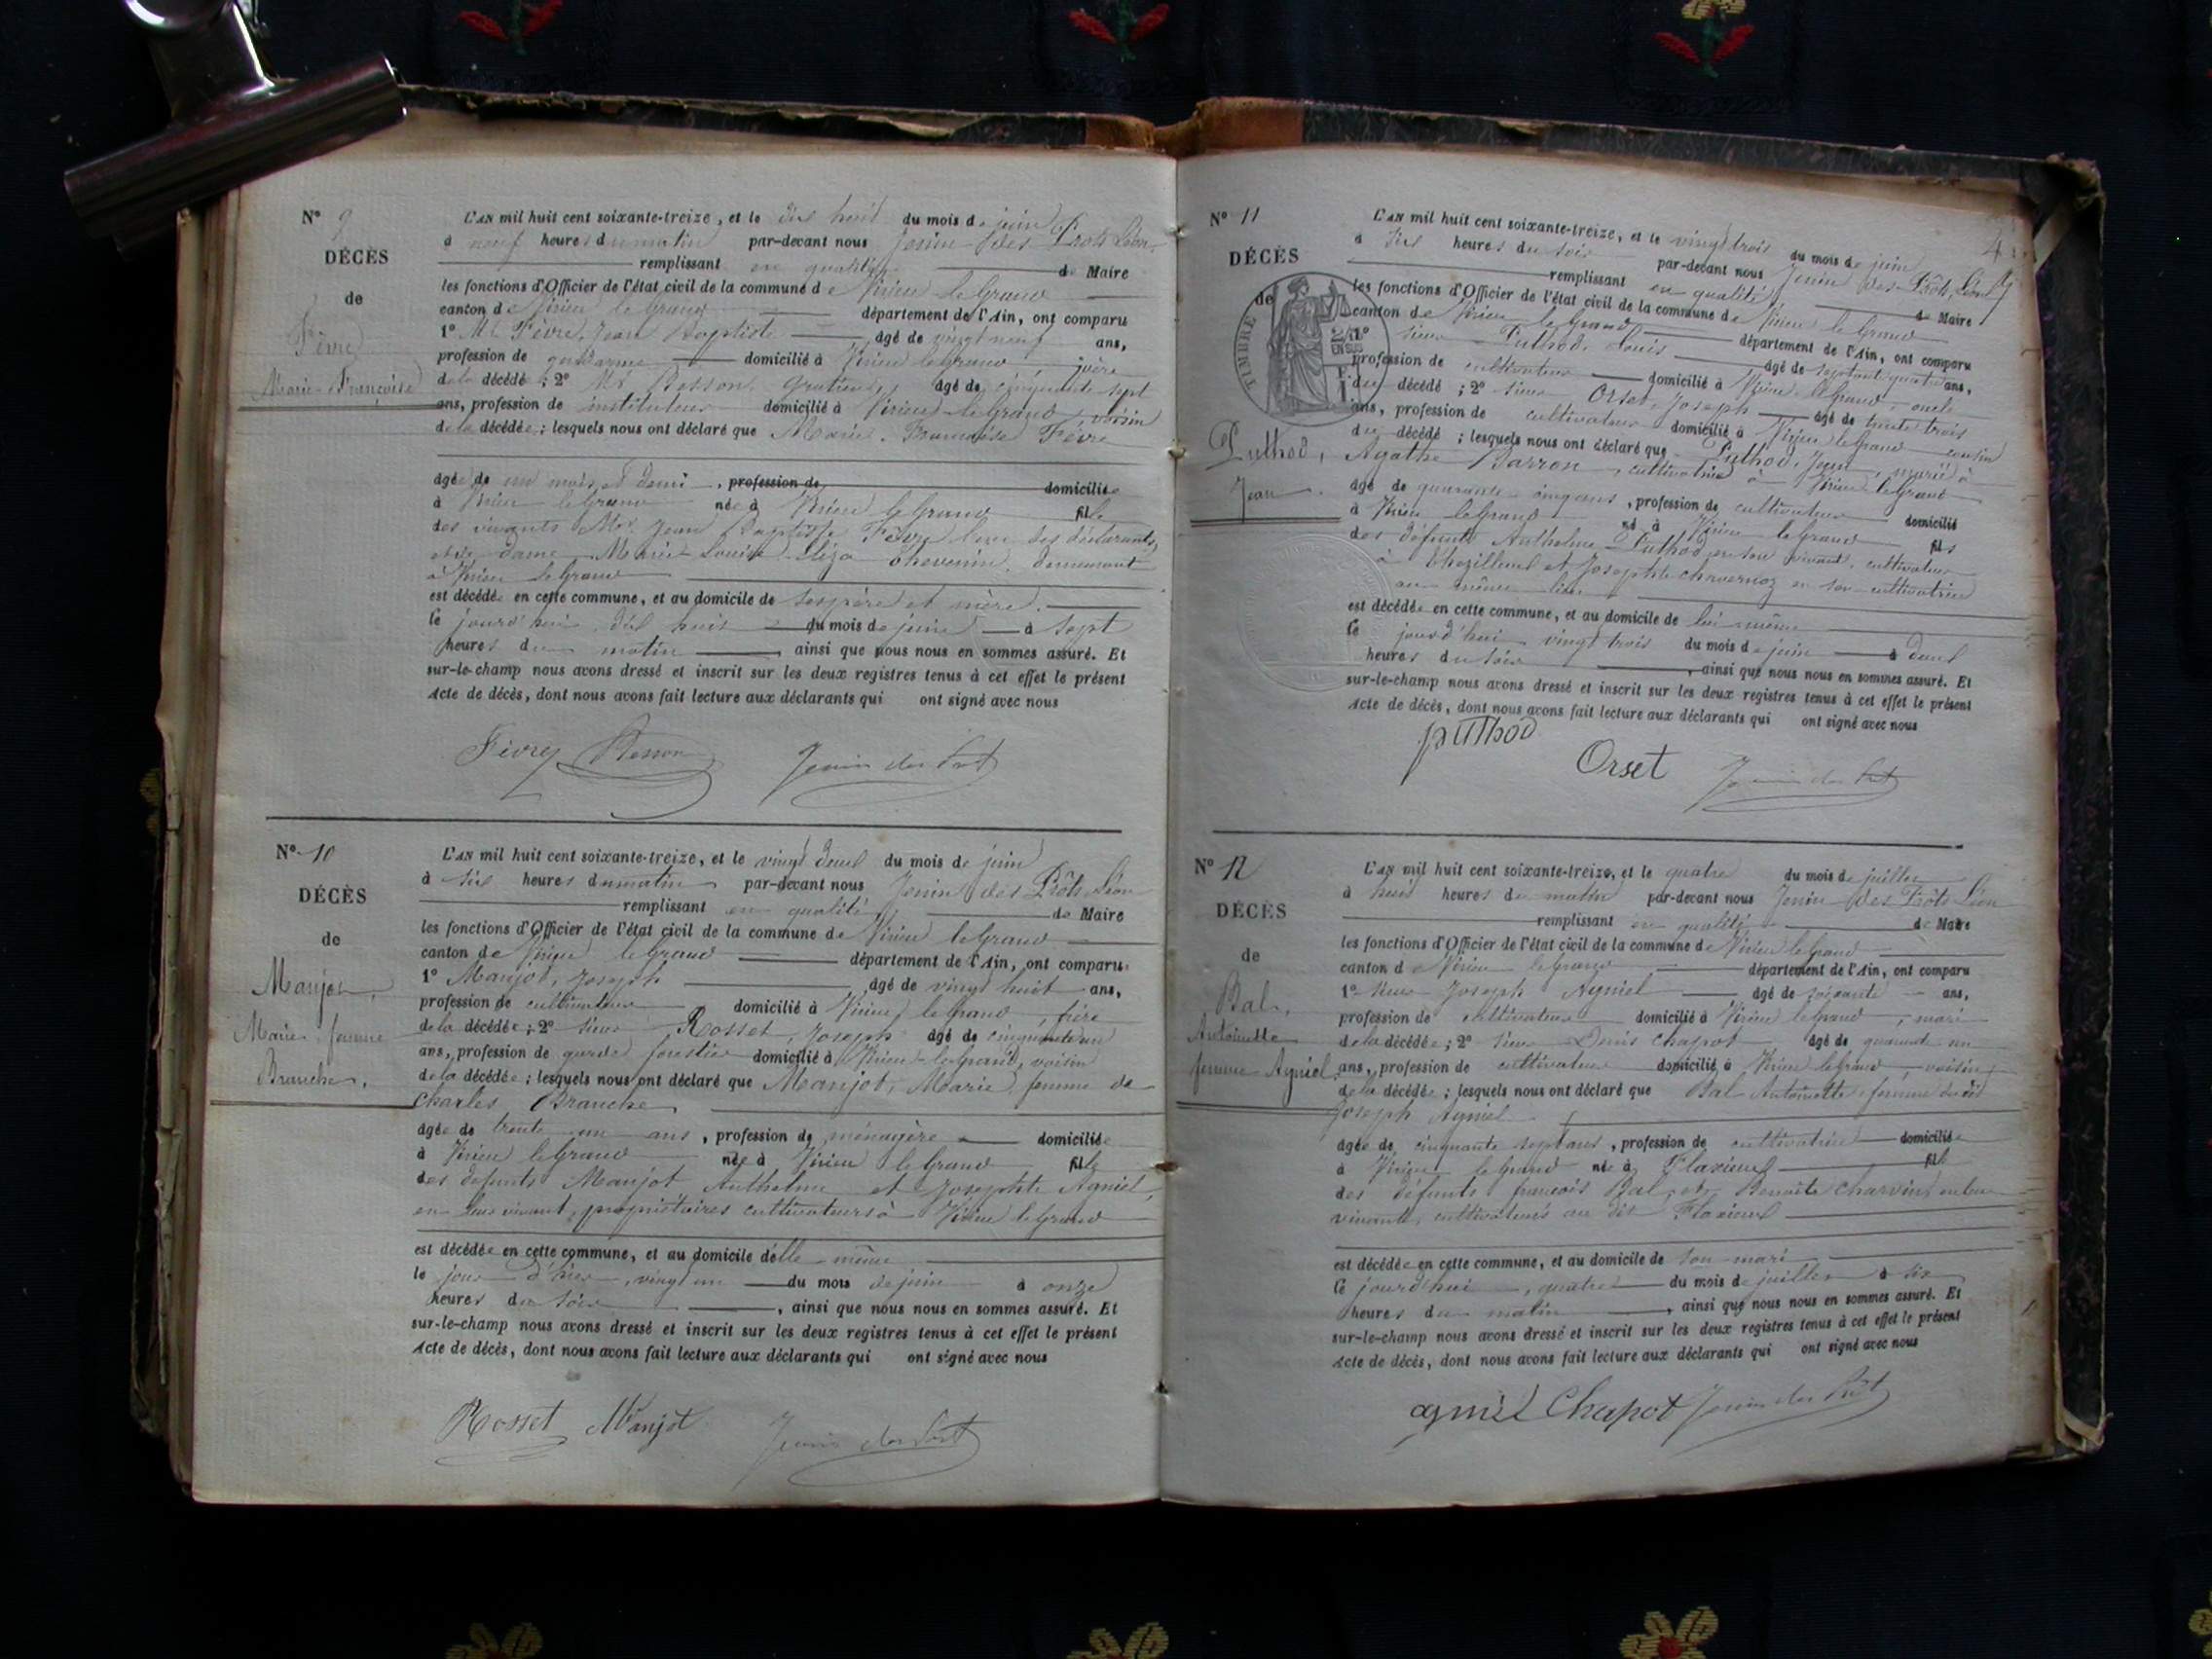 N° 9
DÉCÈS
de
Fèvre
Marie-Françoise
L'AN mil huit cent soixante-treize, et le dix huit du mois de juin
à neuf heures du matin par-devant nous Jenin des Prôts Léon
remplissant en qualité de Maire
les fonctions d'Officier de l'état civil de la commune de Virieu le Grand
canton de Virieu le Grand département de l'Ain, ont comparu
1° Mr Fèvre, Jean Baptiste âgé de vingt neuf ans,
profession de gendarme domicilié à Virieu le Grand père
de la décédé ; 2° Mr Besson âgé de cinquante sept
ans, profession de instituteur domicilié à Virieu le Grand, voisin
de la décédée ; lesquels nous ont déclaré que Marie Françoise Fèvre
âgée de un mois et demi, profession de domiciliée
à Virieu le Grand née à Virieu le Grand fille
des vivants Mr Jean Baptiste Fèvre l'un des déclarants,
et de dame Marie Louise Chevenin demeurant
à Virieu le Grand
est décédée en cette commune, et au domicile de ses père et mère.
le jourd'hui dix huit du mois de juin à sept
heures du matin, ainsi que nous nous en sommes assuré. Et
sur-le-champ nous avons dressé et inscrit sur les deux registres tenus à cet effet le présent
Acte de décès, dont nous avons fait lecture aux déclarants qui ont signé avec nous
Fèvre Besson Jenin des Prôt
N° 10
DÉCÈS
de
Manjot,
Marie femme
Branche,
L'AN mil huit cent soixante-treize, et le vingt deux du mois de juin
à six heures du matin par-devant nous Jenin des Prôts Léon
remplissant en qualité de Maire
les fonctions d'Officier de l'état civil de la commune de Virieu le Grand
canton de Virieu le Grand département de l'Ain, ont comparu
1° Manjot, Joseph âgé de vingt huit ans,
profession de cultivateur domicilié à Virieu le Grand, frère
de la décédée ; 2° sieur Rosset, Joseph âgé de cinquante un
ans, profession de garde forestier domicilié à Virieu le Grand, voisin
de la décédée ; lesquels nous ont déclaré que Manjot, Marie femme de
Charles Branche
âgée de trente un ans, profession de ménagère domiciliée
à Virieu le Grand née à Virieu le Grand fille
des défunts Manjot Anthelme et Josephte Agniel,
en leur vivant, propriétaires cultivateurs à Virieu le Grand
est décédée en cette commune, et au domicile d'elle même
le jour d'hier, vingt un du mois de juin à onze
heures du soir, ainsi que nous nous en sommes assuré. Et
sur-le-champ nous avons dressé et inscrit sur les deux registres tenus à cet effet le présent
Acte de décès, dont nous avons fait lecture aux déclarants qui ont signé avec nous
Rosset Manjot Jenin des Prôt
N° 11
DÉCÈS
de
TIMBRE
Puthod,
Jean
L'AN mil huit cent soixante-treize, et le vingt trois du mois de juin
à six heures du soir par-devant nous Jenin des Prôts, Léon
remplissant en qualité de Maire
les fonctions d'Officier de l'état civil de la commune de Virieu le Grand
canton de Virieu le Grand département de l'Ain, ont comparu
1° sieur Puthod, Louis âgé de septante quatre ans,
profession de cultivateur domicilié à Virieu le Grand, oncle
du décédé ; 2° sieur Orset Joseph âgé de trente trois
ans, profession de cultivateur domicilié à Virieu le Grand cousin
du décédé ; lesquels nous ont déclaré que Puthod, Jean, marié à
Agathe Barron, cultivatrice à Virieu le Grand
âgé de quarante cinq ans, profession de cultivateur domicilié
à Virieu le Grand né à Virieu le Grand fils
des défunts Anthelme Puthod, en son vivant, cultivateur
à et Josephte en son cultivatrice
au même lieu
est décédée en cette commune, et au domicile de lui même
le jourd'hui vingt trois du mois de juin à deux
heures du soir, ainsi que nous nous en sommes assuré. Et
sur-le-champ nous avons dressé et inscrit sur les deux registres tenus à cet effet le présent
Acte de décès, dont nous avons fait lecture aux déclarants qui ont signé avec nous
puthod
Orset Jenin des Prôt
N° 12
DÉCÈS
de
Bal,
Antoinette
femme Agniel
L'AN mil huit cent soixante-treize, et le quatre du mois de juillet
à huit heures du matin par-devant nous Jenin des Prôts Léon
remplissant en qualité de Maire
les fonctions d'Officier de l'état civil de la commune de Virieu le Grand
canton de Virieu le Grand département de l'Ain, ont comparu
1° sieur Joseph Agniel âgé de soixante ans,
profession de cultivateur domicilié à Virieu le Grand, mari
de la décédée ; 2° sieur Denis Chapot âgé de quarante un
ans, profession de cultivateur domicilié à Virieu le Grand, voisin
de la décédée ; lesquels nous ont déclaré que Bal Antoinette femme du dit
Joseph Agniel
âgée de cinquante sept ans, profession de cultivatrice domiciliée
à Virieu le Grand née à Flaxieu fille
des défunts françois Bal, et Benoîte Charvin, en leur
vivants, cultivateurs au dit Flaxieu
est décédée en cette commune, et au domicile de son mari
le jourd'hui, quatre du mois de juillet à six
heures du matin, ainsi que nous nous en sommes assuré. Et
sur-le-champ nous avons dressé et inscrit sur les deux registres tenus à cet effet le présent
Acte de décès, dont nous avons fait lecture aux déclarants qui ont signé avec nous
agniel Chapot Jenin des Prôt